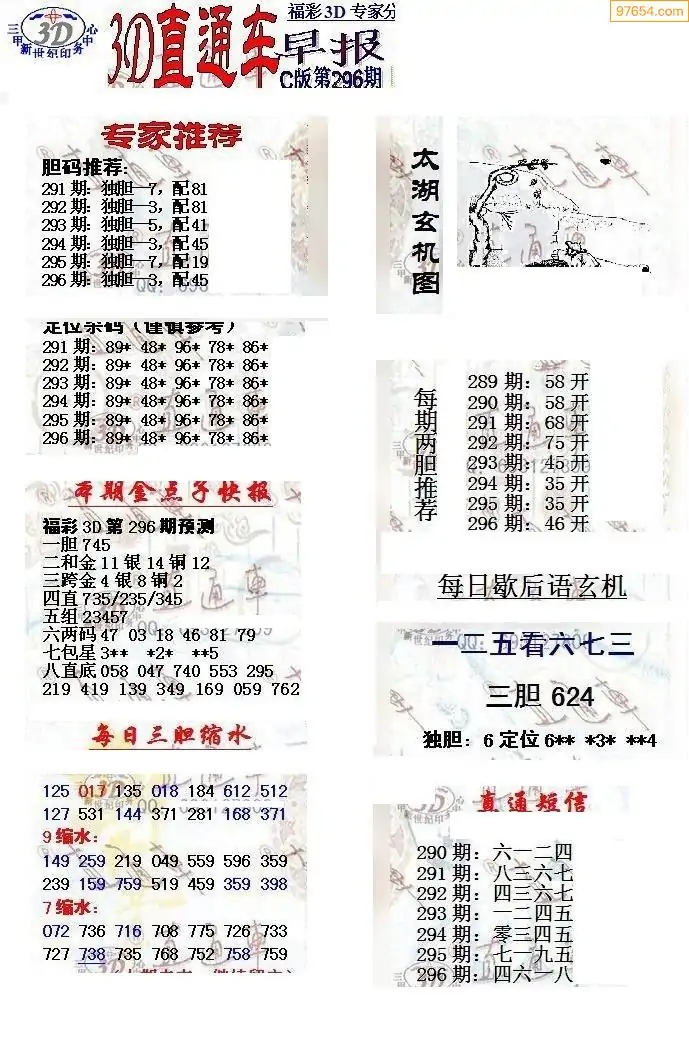 97654.com
福彩3D 专家分
三甲新世纪印务中心
3D
3D直通车
早报
C版第296期
专家推荐
胆码推荐:
291期: 独胆—7, 配81
292期: 独胆—3, 配81
293期: 独胆—5, 配41
294期: 独胆—3, 配45
295期: 独胆—7, 配19
296期: 独胆—3, 配45
定位杀码（谨慎参考）
291期: 89* 48* 96* 78* 86*
292期: 89* 48* 96* 78* 86*
293期: 89* 48* 96* 78* 86*
294期: 89* 48* 96* 78* 86*
295期: 89* 48* 96* 78* 86*
296期: 89* 48* 96* 78* 86*
本期金点子快报
福彩3D第296期预测
一胆745
二和金11银14铜12
三跨金4银8铜2
四直735/235/345
五组23457
六两码47 03 18 46 81 79
七包星3** *2* **5
八直底058 047 740 553 295
219 419 139 349 169 059 762
每日三胆缩水
125 017 135 018 184 612 512
127 531 144 371 281 168 371
9缩水:
149 259 219 049 559 596 359
239 159 759 519 459 359 398
7缩水:
072 736 716 708 775 726 733
727 738 735 768 752 758 759
太湖玄机图
每期两胆推荐
289期: 58开
290期: 58开
291期: 68开
292期: 75开
293期: 45开
294期: 35开
295期: 35开
296期: 46开
每日歇后语玄机
一二五看六七三
三胆 624
独胆: 6 定位6** *3* **4
直通短信
290期: 六一二四
291期: 八三六七
292期: 四三六七
293期: 一二四五
294期: 零三四五
295期: 七一九五
296期: 四六一八